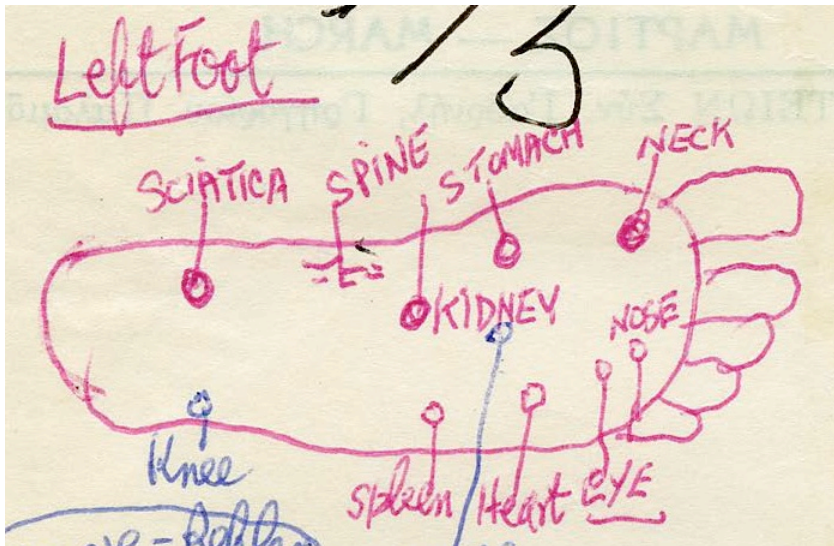 Left Foot
ΜΑΡΤΙΟΣ — MARCH
SCIATICA SPINE STOMACH NECK
KIDNEY NOSE
Knee Spleen Heart EYE